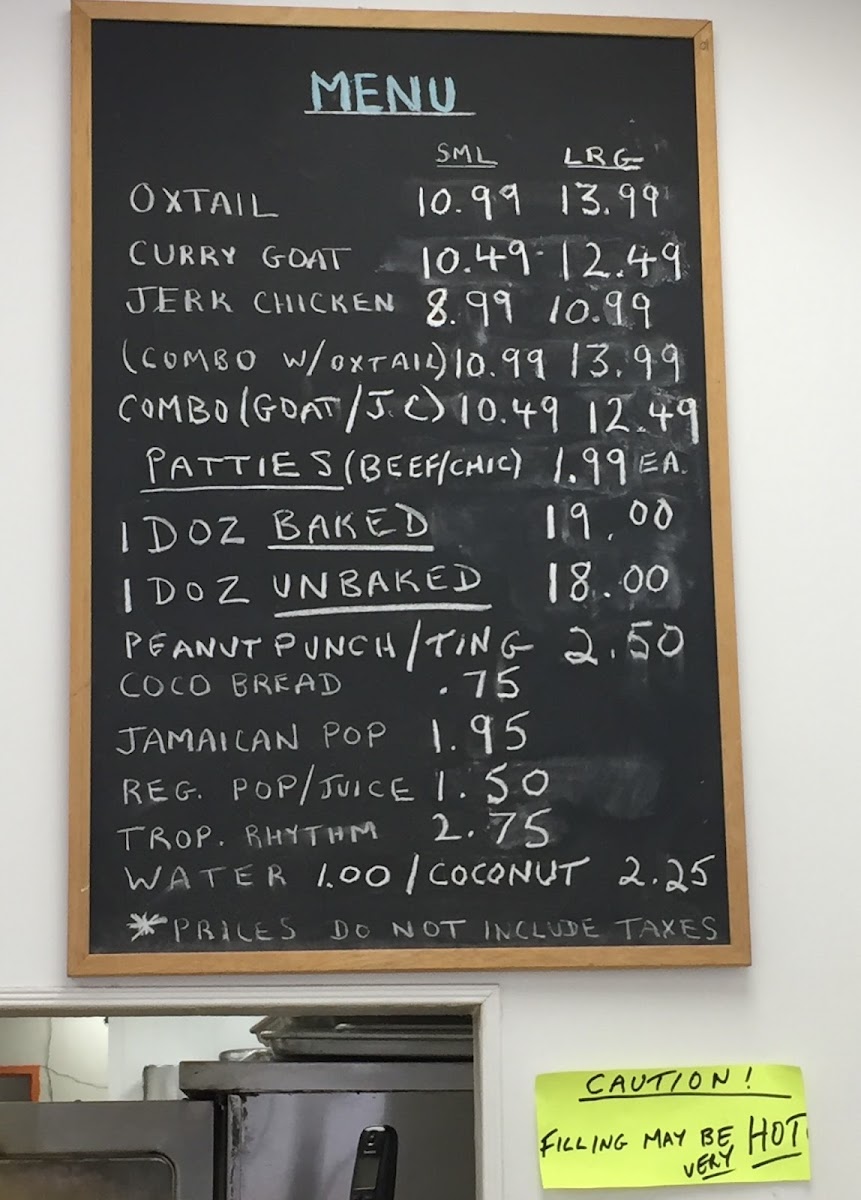 MENU
SML LRG
OXTAIL 10.99 13.99
CURRY GOAT 10.49 12.49
JERK CHICKEN 8.99 10.99
(COMBO W/OXTAIL) 10.99 13.99
COMBO (GOAT/J.C) 10.49 12.49
PATTIES (BEEF/CHIC) 1.99 EA.
1 DOZ BAKED 19.00
1 DOZ UNBAKED 18.00
PEANUT PUNCH/TING 2.50
COCO BREAD .75
JAMAICAN POP 1.95
REG. POP/JUICE 1.50
TROP. RHYTHM 2.75
WATER 1.00 / COCONUT 2.25
*PRICES DO NOT INCLUDE TAXES
CAUTION!
FILLING MAY BE HOT
VERY